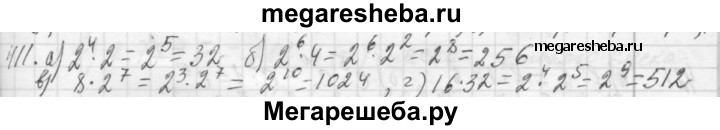 megaresheba.ru
411. а) 2⁴·2=2⁵=32 б) 2⁶·4=2⁶·2²=2⁸=256
в) 8·2⁷=2³·2⁷=2¹⁰=1024, г) 16·32=2⁴·2⁵=2⁹=512
Мегарешеба.ру